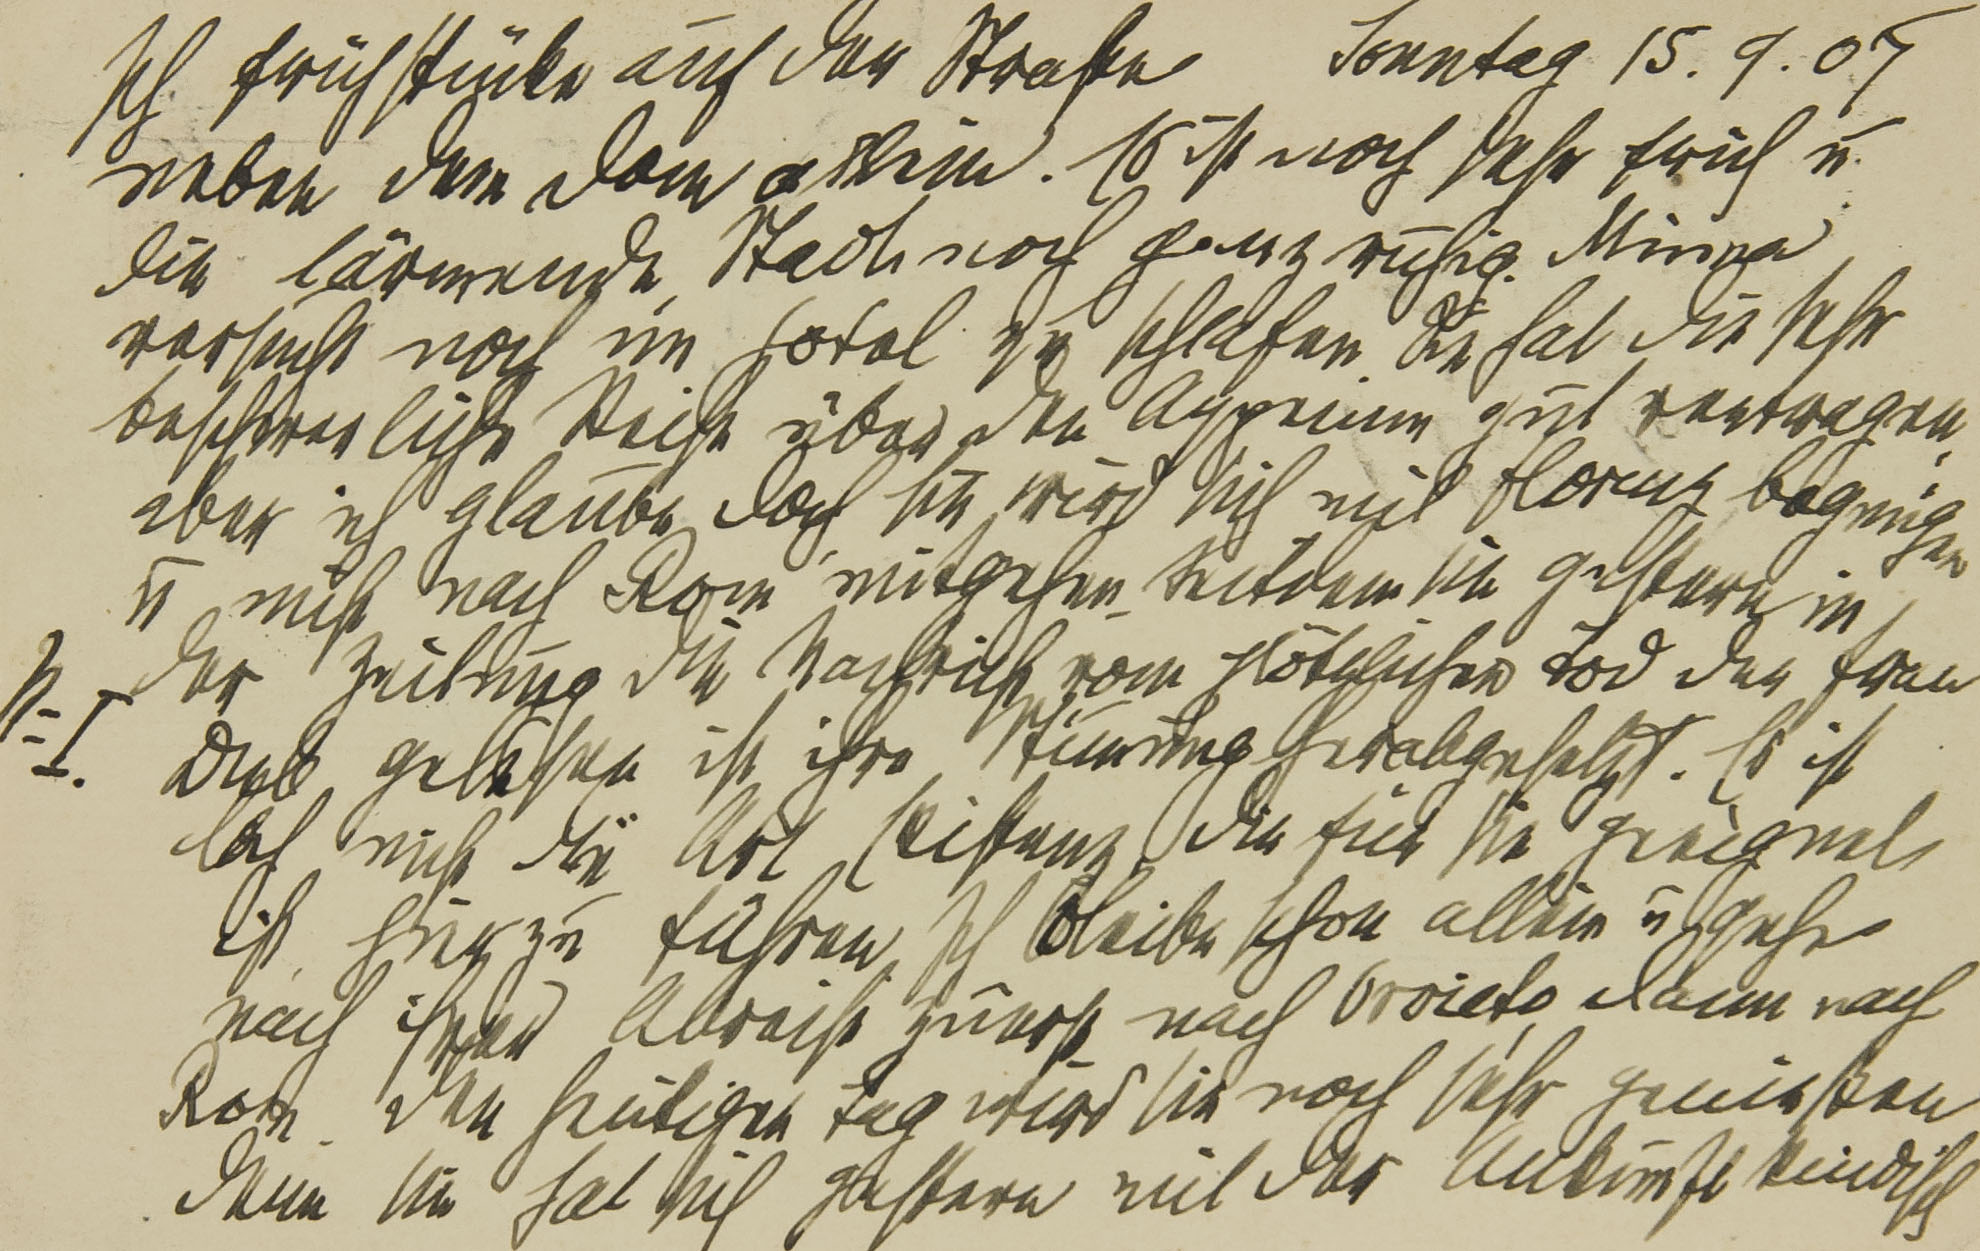 Ich frühstücke auf der Straße Sonntag 15. 9. 07
neben dem Dom allein. Es ist noch sehr früh u
die lärmende Stadt noch ganz ruhig. Minna
versucht noch im Hotel zu schlafen. Sie hat die sehr
beschwerliche Reise über den Appenin gut vertragen,
aber ich glaube doch sie wird sich mit Florenz begnügen
u nicht nach Rom mitgehen. Seitdem sie gestern in
der Zeitung die Nachricht vom plötzlichen Tod der Frau
gelesen ist ihre Stimmung herabgesetzt. Es ist
nicht die Art Existenz, die für sie geeignet
ist, hier zu führen. Ich bleibe schon allein u gehe
nach ihrer Abreise zuerst nach Orvieto, dann nach
Rom. Den heutigen Tag wird sie noch sehr genießen
denn sie hat sich gestern mit der Ankunft kindisch
N-I.